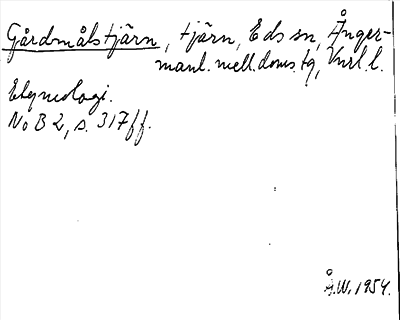 Gårdmålstjärn, tjärn, Eds sn, Ånger-
manl. mell. doms. tg, Vnrl. l.
Etymologi.
No B 2, s. 317 ff.
Å.W. 1954.